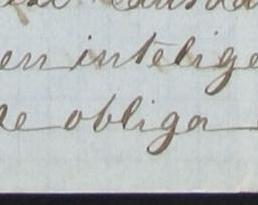 en intelige
se obliga